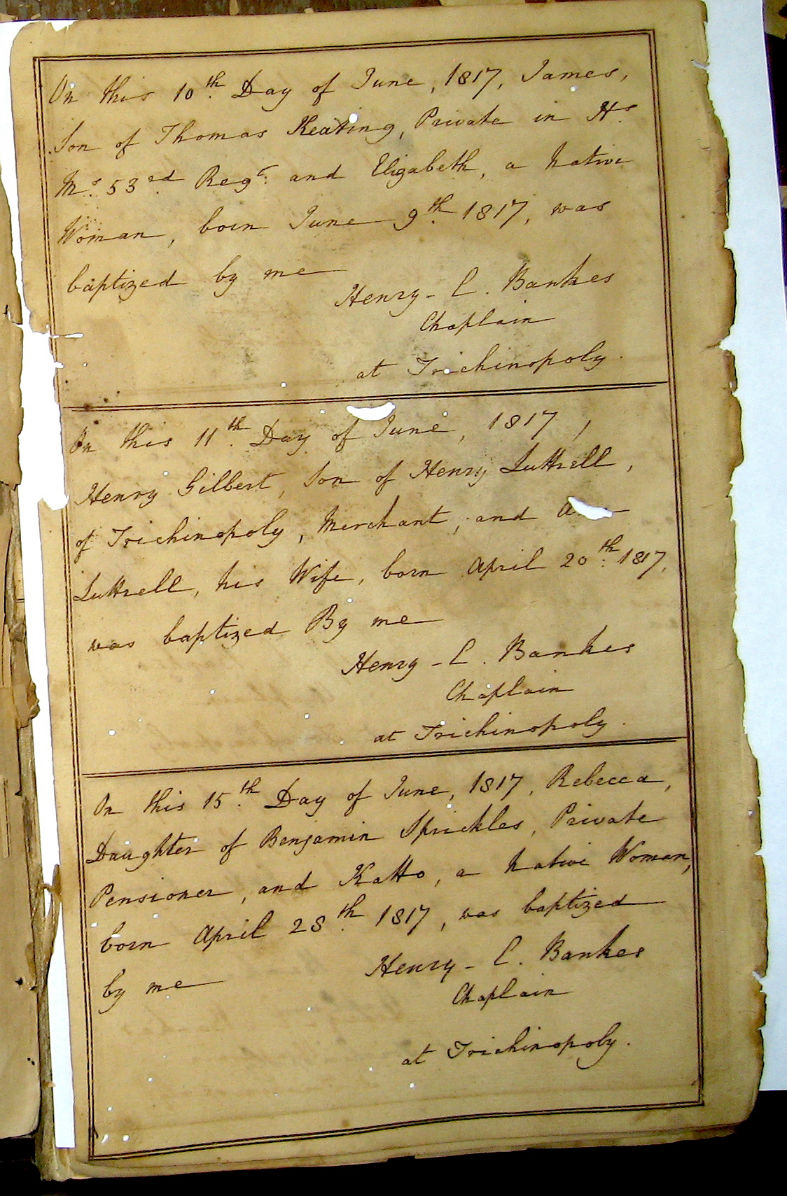 On this 10th Day of June, 1817, James,
Son of Thomas Keating, Private in Hs
Ms 53rd Regt and Elizabeth, a Native
Woman, born June 9th 1817, was
baptized by me
Henry - C. Bankes
Chaplain
at Trichinopoly.
On this 11th Day of June, 1817,
Henry Gilbert, Son of Henry Luttrell,
of Trichinopoly, Merchant, and
Luttrell, his Wife, born April 20th 1817,
was baptized By me
Henry - C. Bankes
Chaplain
at Trichinopoly.
On this 15th Day of June, 1817, Rebecca,
Daughter of Benjamin Sprickles, Private
Pensioner, and Katto, a Native Woman,
born April 28th 1817, was baptized
by me
Henry - C. Bankes
Chaplain
at Trichinopoly.